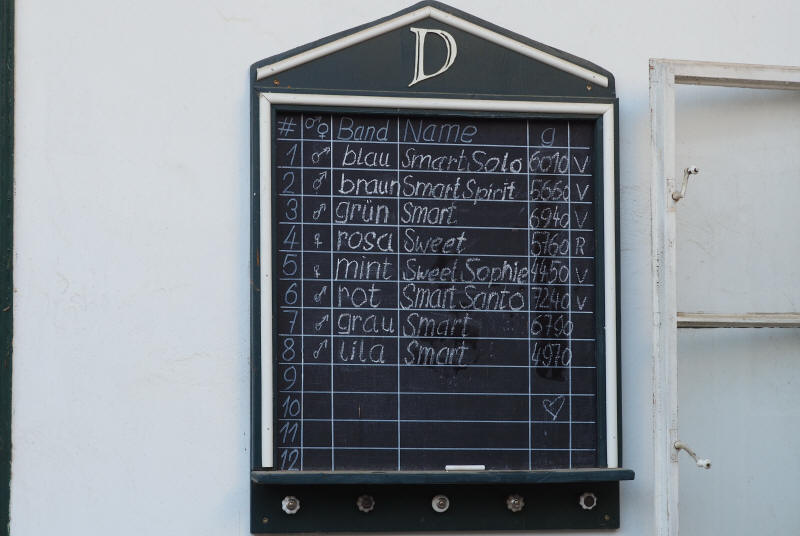 D
# ♂♀ Band Name g
1 ♂ blau Smart Solo 6010 V
2 ♂ braun Smart Spirit 5650 V
3 ♂ grün Smart 6940 V
4 ♀ rosa Sweet 5760 R
5 ♀ mint Sweet Sophie 4450 V
6 ♂ rot Smart Santo 7240 V
7 ♂ grau Smart 6790
8 ♂ lila Smart 4970
9
10 ♡
11
12